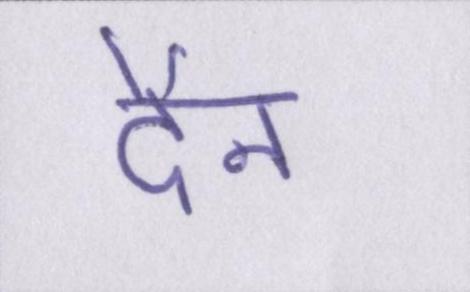 दैन